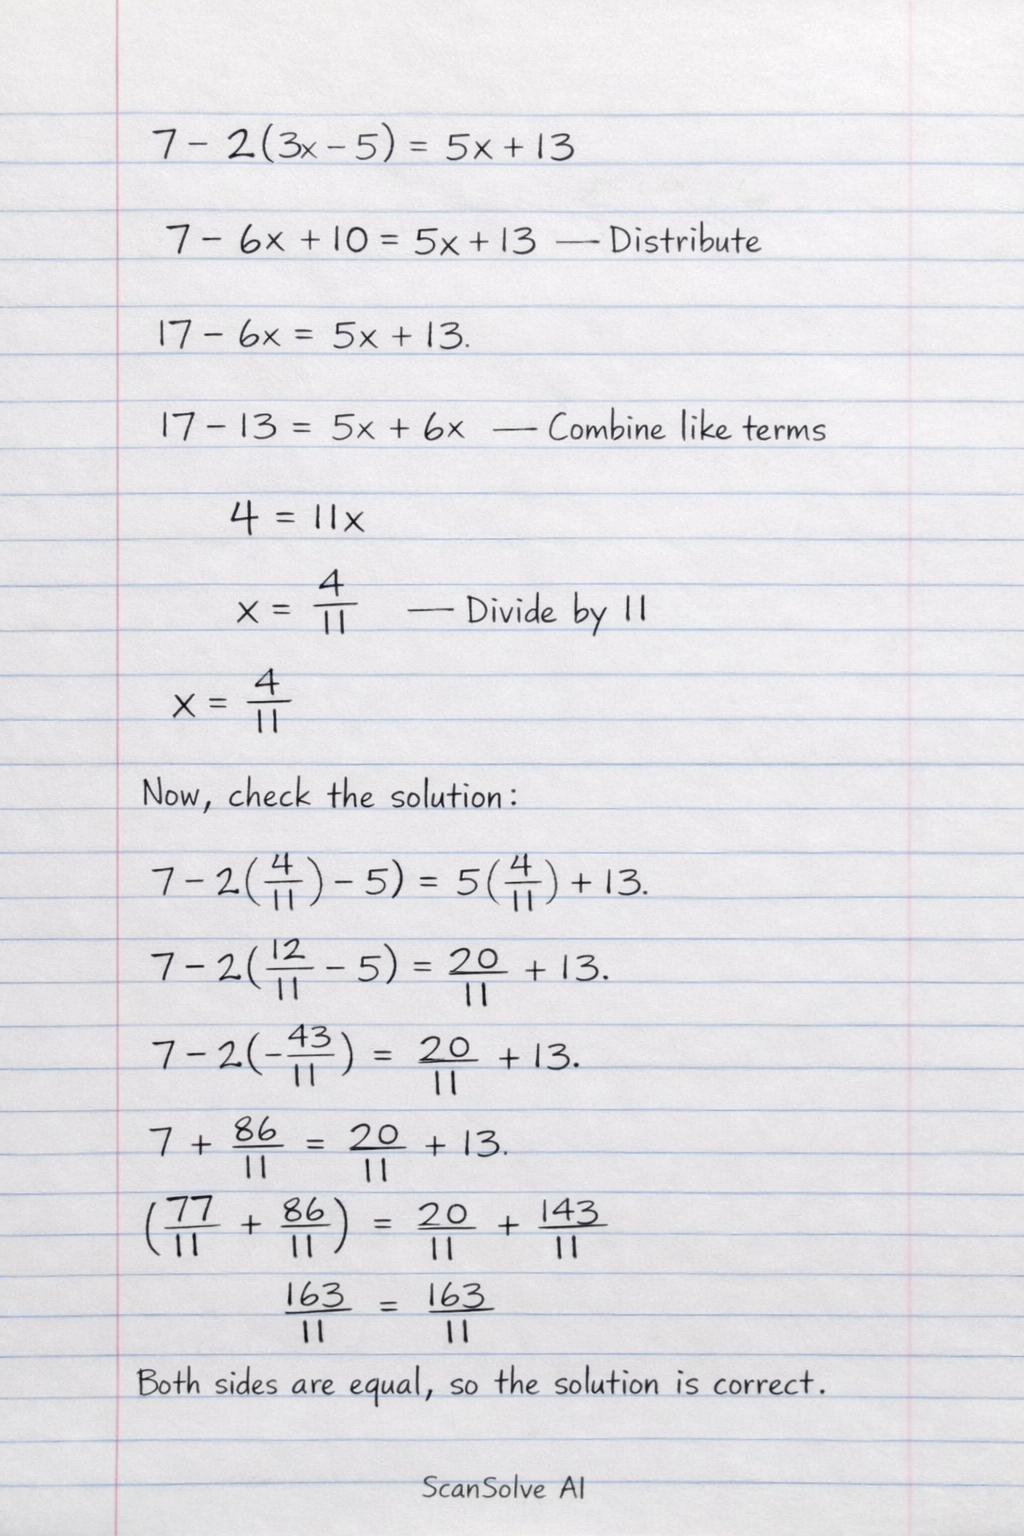 7 - 2(3x - 5) = 5x + 13
7 - 6x + 10 = 5x + 13 — Distribute
17 - 6x = 5x + 13.
17 - 13 = 5x + 6x — Combine like terms
4 = 11x
x = 4/11 — Divide by 11
x = 4/11
Now, check the solution:
7 - 2(4/11) - 5) = 5(4/11) + 13.
7 - 2(12/11 - 5) = 20/11 + 13.
7 - 2(-43/11) = 20/11 + 13.
7 + 86/11 = 20/11 + 13.
(77/11 + 86/11) = 20/11 + 143/11
163/11 = 163/11
Both sides are equal, so the solution is correct.
ScanSolve AI